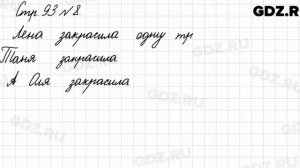 Стр. 93 № 8.
GDZ.R
Лена закрасила одну тр
Таня закрасила
А Оля закрасила